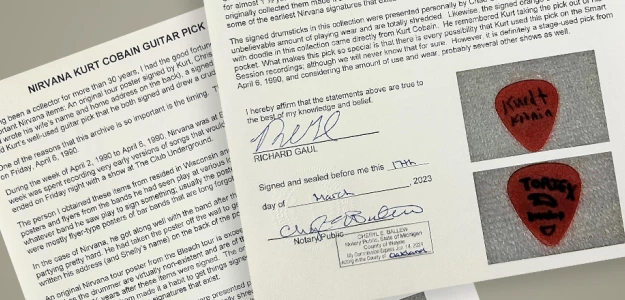 NIRVANA KURT COBAIN GUITAR PICK
ng been a collector for more than 30 years, I had the good fortune
rtant Nirvana items: An original tour poster signed by Kurt, Chris
wrote his wife's name and home address on the back), a signed
d Kurt's well-used guitar pick that he both signed and drew a crud
on Friday, April 6, 1990.
One of the reasons that this archive is so important is the timing. T
During the week of April 2, 1990 to April 6, 1990, Nirvana was at
week was spent recording very early versions of songs that would
ended on Friday night with a show at The Club Underground.
The person I obtained these items from resided in Wisconsin an
posters and items from the bands he had seen play at various lo
whatever band he saw play to sign something, usually the poste
were mostly flyer-type posters of bar bands that are long forgot
In the case of Nirvana, he got along well with the band after th
partying pretty hard. He had taken the poster off the wall to g
written his address (and Shelly's name) on the back of the po
An original Nirvana tour poster from the Bleach tour is exce
the drummer are virtually non-existent and are of th
years after these items were signed. The o
made it a habit to get things signe
signatures that exist.
presented p
ally shre
for almost
originally collected them made
some of the earliest Nirvana signatures that exist
The signed drumsticks in this collection were presented personally by Chad
unbelievable amount of playing wear and are totally shredded. Likewise, the signed orange
with doodle in this collection came directly from Kurt Cobain. He remembered Kurt taking the pick out of his
pocket. What makes this pick so special is that there is every possibility that Kurt used this pick on the Smart
Session recordings; although we will never know that for sure. However, it is definitely a stage-used pick from
April 6, 1990, and considering the amount of use and wear, probably several other shows as well.
I hereby affirm that the statements above are true to
the best of my knowledge and belief.
RICHARD GAUL
Signed and sealed before me this 17th
day of March, 2023
Notary Public
CHERYL E. BALLEW
Notary Public, State of Michigan
County of Wayne
My Commission Expires Jun. 14, 2021
Acting in the County of Oakland
Kurdt